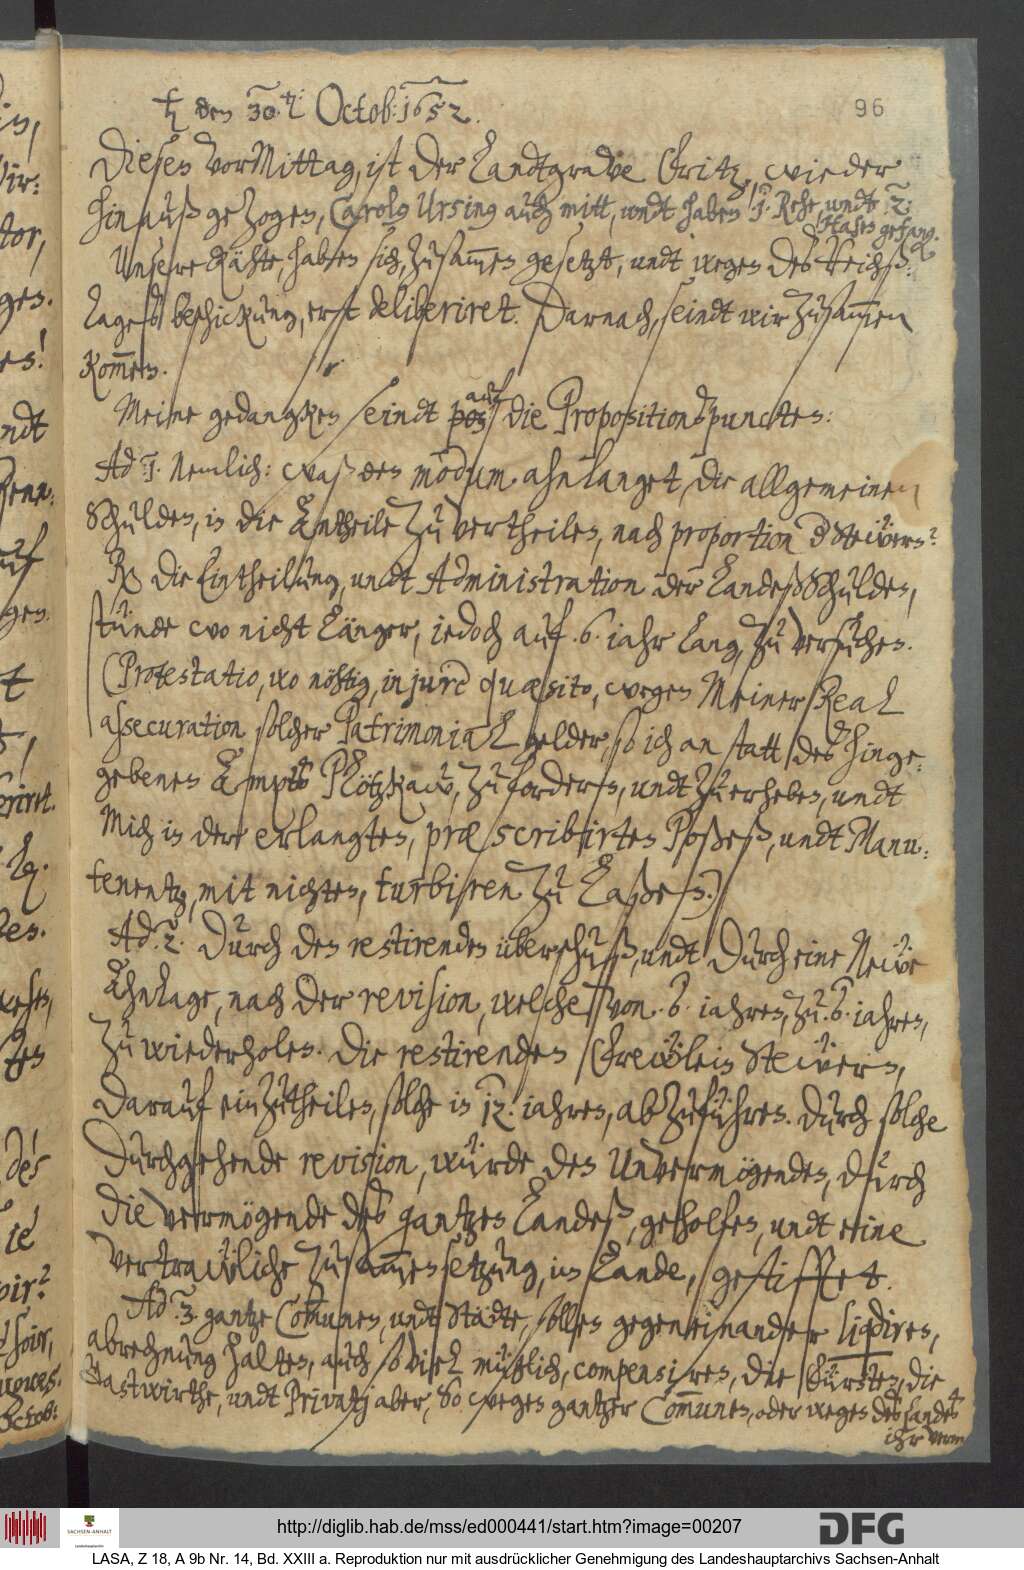 96
♄ den 30.ti Octob: 1652.
Diesen VorMittag, ist der Landtgrave Fritz, wieder
hinauß gezogen, Carolo Ursing auch mitt, undt haben 1. Rehe, undt .2.
Hasen gefang.
Unsere Rähte, haben sich, zusam̅en gesetzt, undt wegen des Reichß-
tages beschickung, erst deliberiret. Darnach, seindt wir zusam̅en
kom̅en.
Meine gedancken seindt auf die Propositionspuncten:
Ad 1. Nemlich: waß den modum ahnlanget, die allgemeinen
Schulden, in die Antheile zu vertheilen, nach proportion der Steüern?
Rx Die Eintheilung, undt Administration der Landesschulden,
stünde wo nicht länger, iedoch auf .6. iahr lang, zu versuchen.
(Protestatio, wo nöhtig, in jure quæsito, wegen Meiner Real
assecuration solcher Patrimonial gelder, so ich an statt des hinge-
gebenen Ampts Plötzkaw, zu fordern, undt zu erheben, undt
Mich in der erlangten, præscribirten Poßeß, undt Manu-
tenentz, mit nichten, turbiren zu laßen.)
Ad .2. Durch den restirenden überschuß, undt durch eine Neüe
Ahnlage, nach der revision, welche von .6. iahren, zu .6. iahren,
zu wiederholen. Die restirenden Frewlein Steüern,
darauf einzutheilen, solche in 12. iahren, abzuführen. Durch solche
Durchgehende revision, würde den Unvermögenden, durch
die vermögende des gantzen Landeß, geholfen, undt eine
vertrawliche Zusam̅ensetzung, im Lande, gestifftet.
Ad .3. gantze Com̅unen, undt Städte, sollen gegeneinander liquidiren,
abrechnung halten, auch so viel müglich, compensiren, die Fürsten, die
Gastwirthe, undt Privati aber, so wegen gantzer Com̅unen, oder wegen des Landes
ihr verm
http://diglib.hab.de/mss/ed000441/start.htm?image=00207
SACHSEN-ANHALT
DFG
LASA, Z 18, A 9b Nr. 14, Bd. XXIII a. Reproduktion nur mit ausdrücklicher Genehmigung des Landeshauptarchivs Sachsen-Anhalt